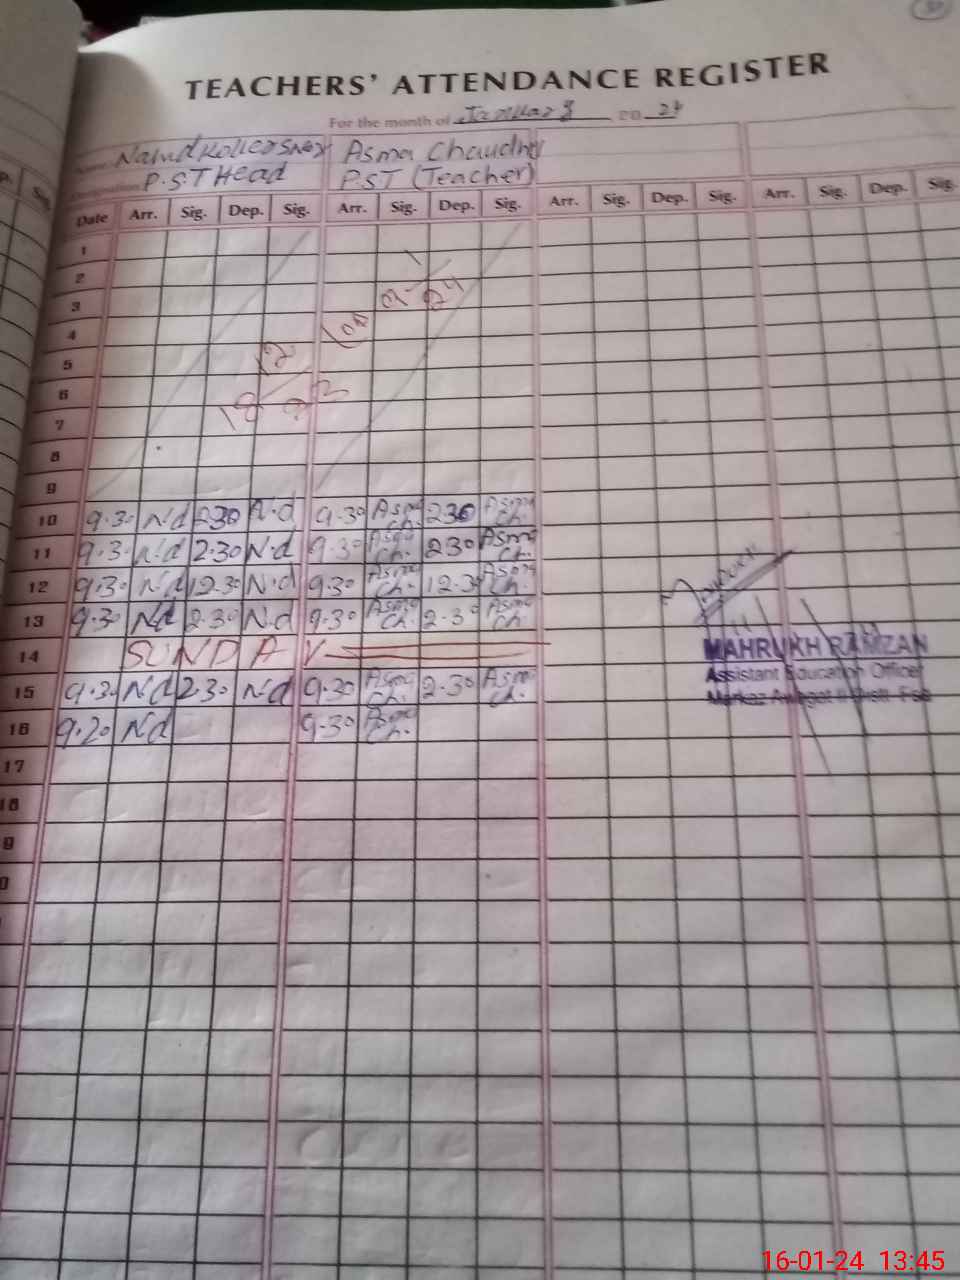 TEACHERS' ATTENDANCE REGISTER
For the month of January 20 24
Asma Chaudhry
P.S.T Head P.S.T (Teacher)
Date Arr. Sig. Dep. Sig. Arr. Sig. Dep. Sig. Arr. Sig. Dep. Sig. Arr. Sig. Dep. Sig.
1
2
3
4
5
6
7
8
9
18/12 23 to 9-1/24
10 9.30 Nd 230 N.d 9.30 Asma Ch. 230 Asma Ch.
11 9.30 N.d 2.30 N.d 9.30 Asma Ch. 230 Asma Ch.
12 9.30 Nd 12.30 N.d 9.30 Asma Ch. 12.30 Asma Ch.
13 9.30 Nd 2.30 N.d 9.30 Asma Ch. 2.30 Asma Ch.
14 SUNDAY
15 9.30 Nd 230 Nd 9.30 Asma Ch. 2.30 Asma Ch.
16 9.20 Nd 9.30 Asma Ch.
17
18
9
0
MAHRUKH RAMZAN
Assistant Education Officer
Markaz
16-01-24 13:45